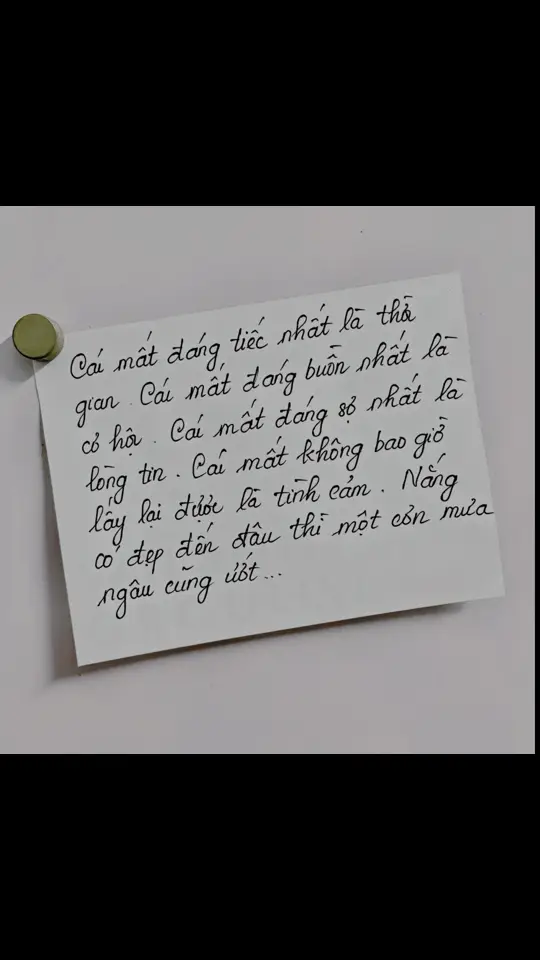 Cái mất đáng tiếc nhất là thời
gian. Cái mất đáng buồn nhất là
cơ hội. Cái mất đáng sợ nhất là
lòng tin. Cái mất không bao giờ
lấy lại được là tình cảm. Nắng
có đẹp đến đâu thì một cơn mưa
ngâu cũng ướt...